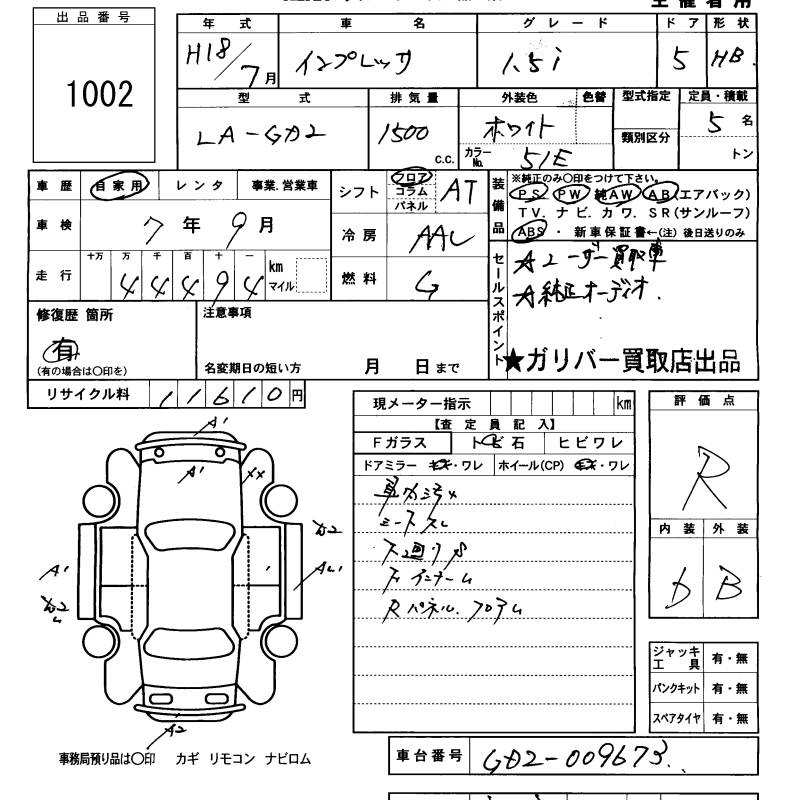 出品番号
1002
年式 車名 グレード ドア 形状
H18/7月 インプレッサ 1.5i 5 HB
型式 排気量 外装色 色替 型式指定 定員・積載
LA-GD2 1500 c.c. ホワイト 類別区分 5名
カラーNo. 51E トン
車歴 自家用 レンタ 事業.営業車
シフト フロア コラム パネル AT
装備品
※純正のみ〇印をつけて下さい。
PS PW 純AW AB(エアバック)
TV. ナビ. カワ. SR(サンルーフ)
ABS ・ 新車保証書←(注) 後日送りのみ
車検 7年9月
冷房 AAC
走行 十万 万 千 百 十 一
44494 km マイル
燃料 G
セールスポイント
☆ユーザー買取車
☆純正オーディオ.
★ガリバー買取店出品
修復歴 箇所
有
(有の場合は〇印を)
注意事項
名変期日の短い方 月 日まで
リサイクル料 11610円
現メーター指示 km
【査定員記入】
Fガラス トビ石 ヒビワレ
ドアミラー キズ・ワレ ホイール(CP) キズ・ワレ
車内汚×
シートスレ
下廻りサ
評価点
R
内装 外装
D B
A'
A' XX
A'
A2
ジャッキ工具 有・無
パンクキット 有・無
スペアタイヤ 有・無
事務局預り品は〇印 カギ リモコン ナビロム
車台番号 GD2-009673